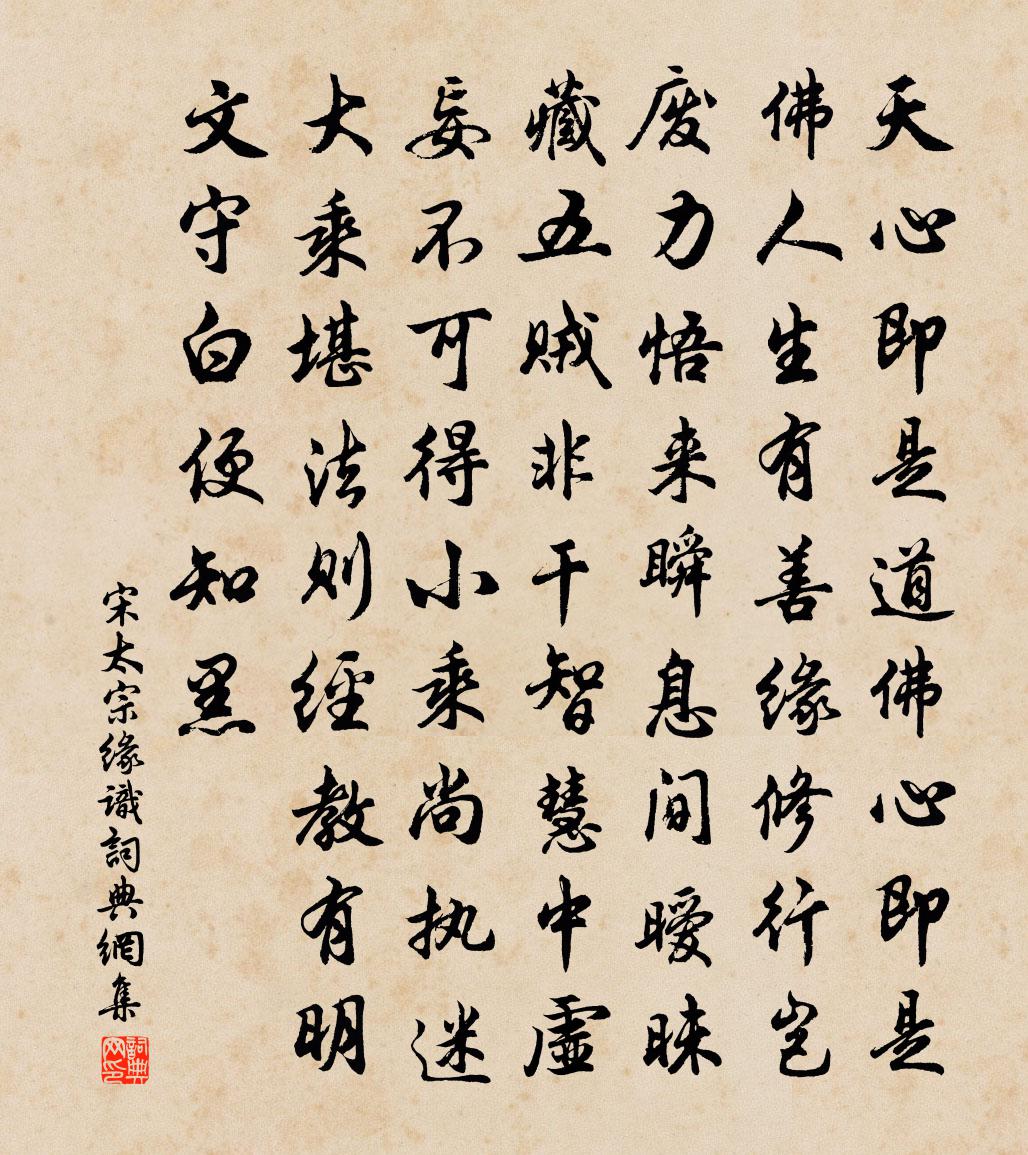 天心即是道佛心即是
佛人生有善缘修行岂
废力悟来瞬息间暧昧
藏五贼非干智慧中虚
妄不可得小乘尚执迷
大乘堪法则经教有明
文守白便知黑
宋太宗缘識詞典網集
詞典网印